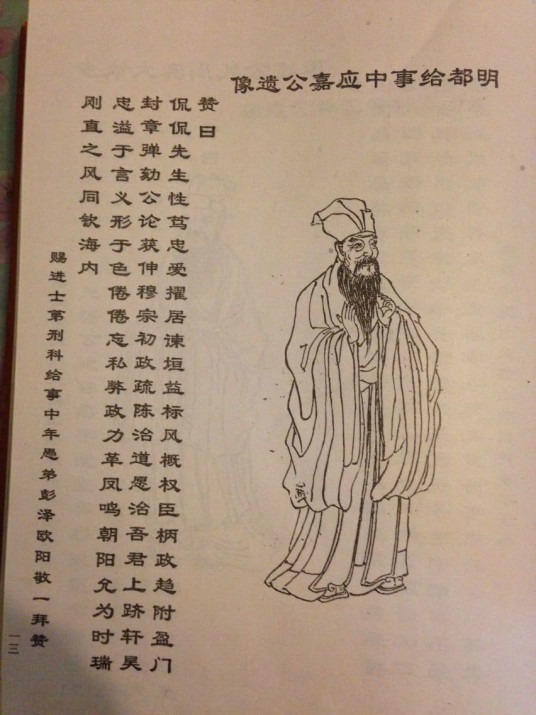 明都给事中应嘉公遗像
赞曰
侃侃先生性笃忠爱擢居谏垣益标风概权臣柄政趋附盈门
封章弹劾公论获伸穆宗初政疏陈治道愿治吾君上跻轩昊
忠溢于言义形于色倦倦忘私弊政力革凤鸣朝阳允为时瑞
刚直之风同钦海内
赐进士第刑科给事中年愚弟彭泽欧阳敬一拜赞
一三